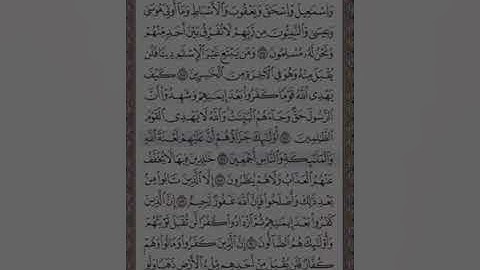 وَإِسْمَٰعِيلَ وَإِسْحَٰقَ وَيَعْقُوبَ وَٱلْأَسْبَاطِ وَمَآ أُوتِىَ مُوسَىٰ
وَعِيسَىٰ وَٱلنَّبِيُّونَ مِن رَّبِّهِمْ لَا نُفَرِّقُ بَيْنَ أَحَدٍ مِّنْهُمْ
وَنَحْنُ لَهُۥ مُسْلِمُونَ وَمَن يَبْتَغِ غَيْرَ ٱلْإِسْلَٰمِ دِينًا فَلَن
يُقْبَلَ مِنْهُ وَهُوَ فِى ٱلْأَخِرَةِ مِنَ ٱلْخَٰسِرِينَ كَيْفَ
يَهْدِى ٱللَّهُ قَوْمًا كَفَرُوا۟ بَعْدَ إِيمَٰنِهِمْ وَشَهِدُوٓا۟ أَنَّ
ٱلرَّسُولَ حَقٌّ وَجَآءَهُمُ ٱلْبَيِّنَٰتُ وَٱللَّهُ لَا يَهْدِى ٱلْقَوْمَ
ٱلظَّٰلِمِينَ أُو۟لَٰٓئِكَ جَزَآؤُهُمْ أَنَّ عَلَيْهِمْ لَعْنَةَ ٱللَّهِ
وَٱلْمَلَٰٓئِكَةِ وَٱلنَّاسِ أَجْمَعِينَ خَٰلِدِينَ فِيهَا لَا يُخَفَّفُ
عَنْهُمُ ٱلْعَذَابُ وَلَا هُمْ يُنظَرُونَ إِلَّا ٱلَّذِينَ تَابُوا۟ مِنۢ
بَعْدِ ذَٰلِكَ وَأَصْلَحُوا۟ فَإِنَّ ٱللَّهَ غَفُورٌ رَّحِيمٌ إِنَّ ٱلَّذِينَ
كَفَرُوا۟ بَعْدَ إِيمَٰنِهِمْ ثُمَّ ٱزْدَادُوا۟ كُفْرًا لَّن تُقْبَلَ تَوْبَتُهُمْ
وَأُو۟لَٰٓئِكَ هُمُ ٱلضَّآلُّونَ إِنَّ ٱلَّذِينَ كَفَرُوا۟ وَمَاتُوا۟ وَهُمْ
كُفَّارٌ فَلَن يُقْبَلَ مِنْ أَحَدِهِم مِّلْءُ ٱلْأَرْضِ ذَهَبًا وَلَوِ